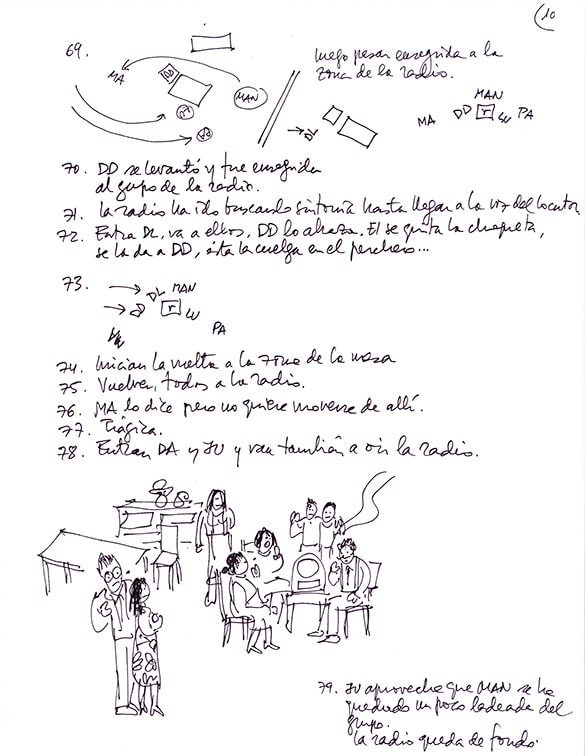 10
69.
MA
DD
MAN
luego pasan enseguida a la
zona de la radio.
DL
MAN
MA DD r LU PA
70. DD se levantó y fue enseguida
al grupo de la radio.
71. la radio ha ido buscando sintonía hasta llegar a la voz del locutor
72. Entra DL, va a ellos, DD lo abraza. El se quita la chaqueta,
se la da a DD, ésta la cuelga en el perchero...
73.
DL MAN
DD r LU
PA
74. Inician la vuelta a la zona de la mesa
75. Vuelven, todos a la radio.
76. MA lo dice pero no quiere moverse de allí.
77. Trágica.
78. Entran DA y JU y van también a oir la radio.
79. JU aprovecha que MAN se ha
quedado un poco ladeada del
grupo.
la radio queda de fondo.